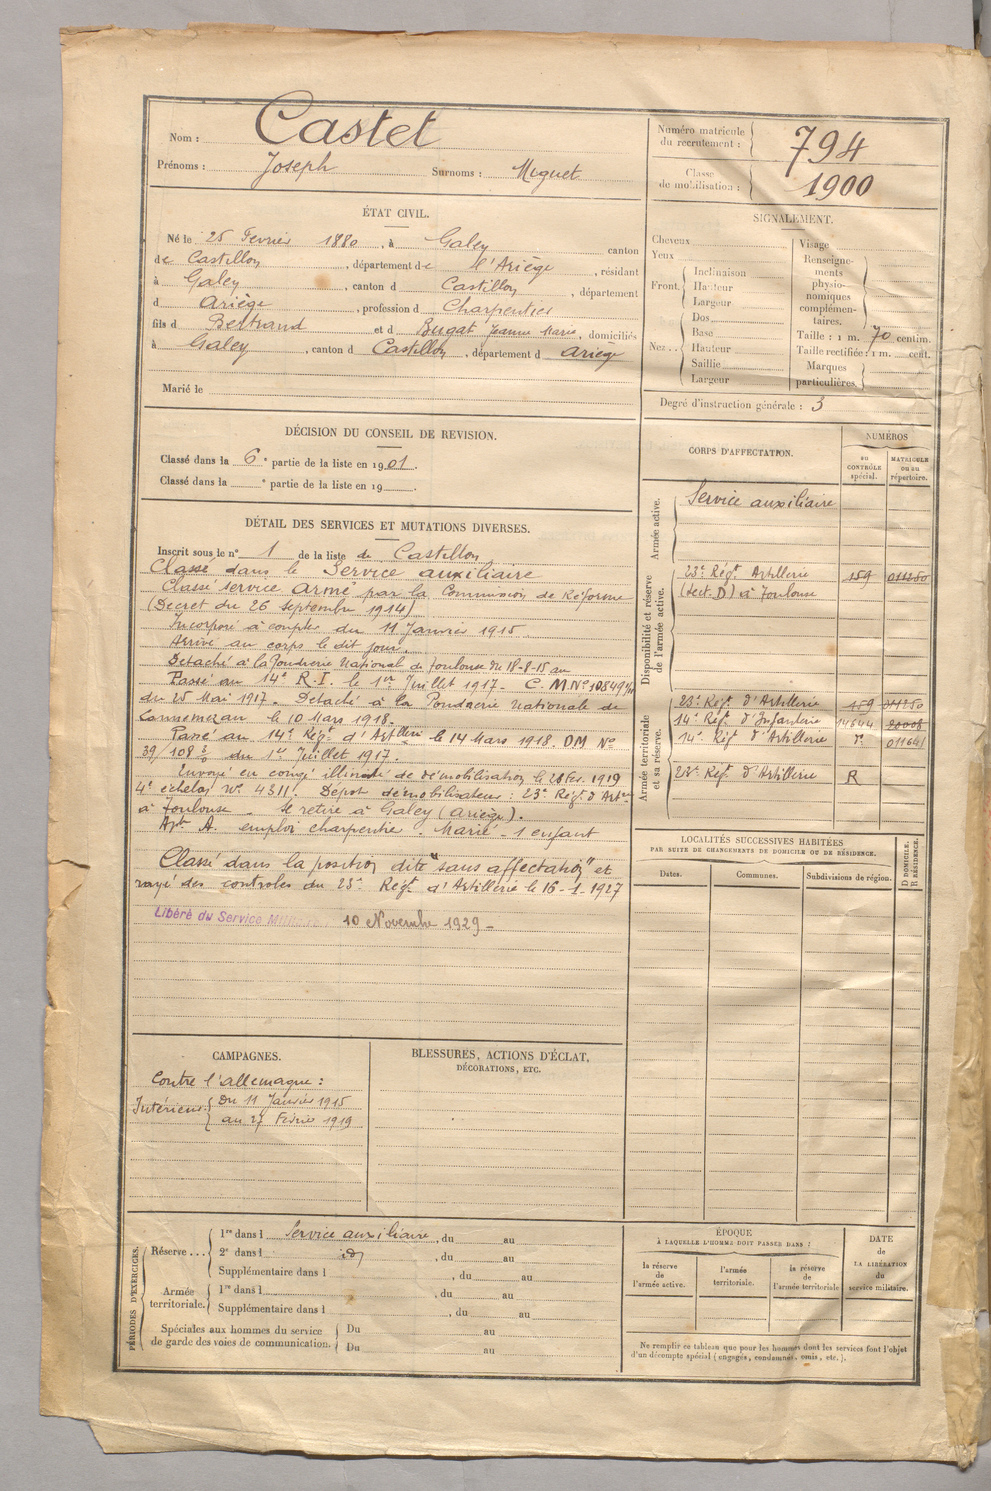 Nom : Castet
Prénoms : Joseph Surnoms : Miquet
Numéro matricule du recrutement : 794
Classe de mobilisation : 1900
ÉTAT CIVIL.
Né le 25 Fevrier 1880, à Galey canton
de Castillon, département de l'Ariège, résidant
à Galey, canton d Castillon, département
d Ariège, profession d Charpentier
fils d Bertrand et d Bugat Jeanne Marie, domiciliés
à Galey, canton d Castillon, département d Ariège
Marié le
SIGNALEMENT.
Cheveux
Yeux
Front. Inclinaison
Hauteur
Largeur
Nez.. Dos
Base
Hauteur
Saillie
Largeur
Visage
Renseignements physionomiques complémentaires.
Taille : 1 m. 70 centim.
Taille rectifiée : 1 m. cent.
Marques particulières
Degré d'instruction générale : 3
DÉCISION DU CONSEIL DE REVISION.
Classé dans la 6e partie de la liste en 1901.
Classé dans la e partie de la liste en 19 .
DÉTAIL DES SERVICES ET MUTATIONS DIVERSES.
Inscrit sous le n° 1 de la liste de Castillon
Classé dans le Service auxiliaire
Classé service armé par la Commission de Réforme
(Décret du 26 septembre 1914)
Incorporé à compter du 11 Janvier 1915
Arrivé au corps le dit jour.
Détaché à la Poudrerie National de Toulouse du 18-8-15 au
Passé au 14e R.I. le 1er Juillet 1917 - C.M. N° 108491/11
du 25 Mai 1917. Detaché à la Poudrerie Nationale de
Lannemezan le 10 Mars 1918.
Passé au 14e Régt d'Artillerie le 14 Mars 1918. DM N°
39/108 du 1er Juillet 1917.
Envoyé en congé illimité de démobilisation le 28 Fev. 1919
4e échelon N° 4311. Dépôt démobilisateur : 23e Régt d'Artie
à Toulouse - Se retire à Galey (Ariège).
Apte A. emploi charpentre. Marié - 1 enfant
Classé dans la position dite "sans affectation" et
rayé des controles du 23e Régt d'Artillerie le 16-1-1927
Libéré du Service Militaire 10 Novembre 1929 -
CORPS D'AFFECTATION.
NUMÉROS
au CONTRÔLE spécial.
MATRICULE ou au répertoire.
Armée active.
Service auxiliaire
Disponibilité et réserve de l'armée active.
23e Régt Artillerie 159 011250
(Sect. D) à Toulouse
Armée territoriale et sa réserve.
23e Régt d'Artillerie 159 011250
14e Régt d'Infanterie 14644 20006
14e Régt d'Artillerie do 01164
23e Régt d'Artillerie R
LOCALITÉS SUCCESSIVES HABITÉES
PAR SUITE DE CHANGEMENTS DE DOMICILE OU DE RÉSIDENCE.
Dates. Communes. Subdivisions de région. D DOMICILE. R RÉSIDENCE.
CAMPAGNES.
Contre l'allemagne :
Intérieur du 11 Janvier 1915
au 27 Février 1919
BLESSURES, ACTIONS D'ÉCLAT,
DÉCORATIONS, ETC.
PÉRIODES D'EXERCICES.
Réserve... 1re dans l Service auxiliaire, du au
2e dans l id, du au
Supplémentaire dans l , du au
Armée territoriale. 1re dans l , du au
Supplémentaire dans l , du au
Spéciales aux hommes du service Du au
de garde des voies de communication. Du au
ÉPOQUE
À LAQUELLE L'HOMME DOIT PASSER DANS :
la réserve de l'armée active.
l'armée territoriale.
la réserve de l'armée territoriale
DATE de LA LIBÉRATION du service militaire.
Ne remplir ce tableau que pour les hommes dont les services font l'objet
d'un décompte spécial (engagés, condamnés, omis, etc.).